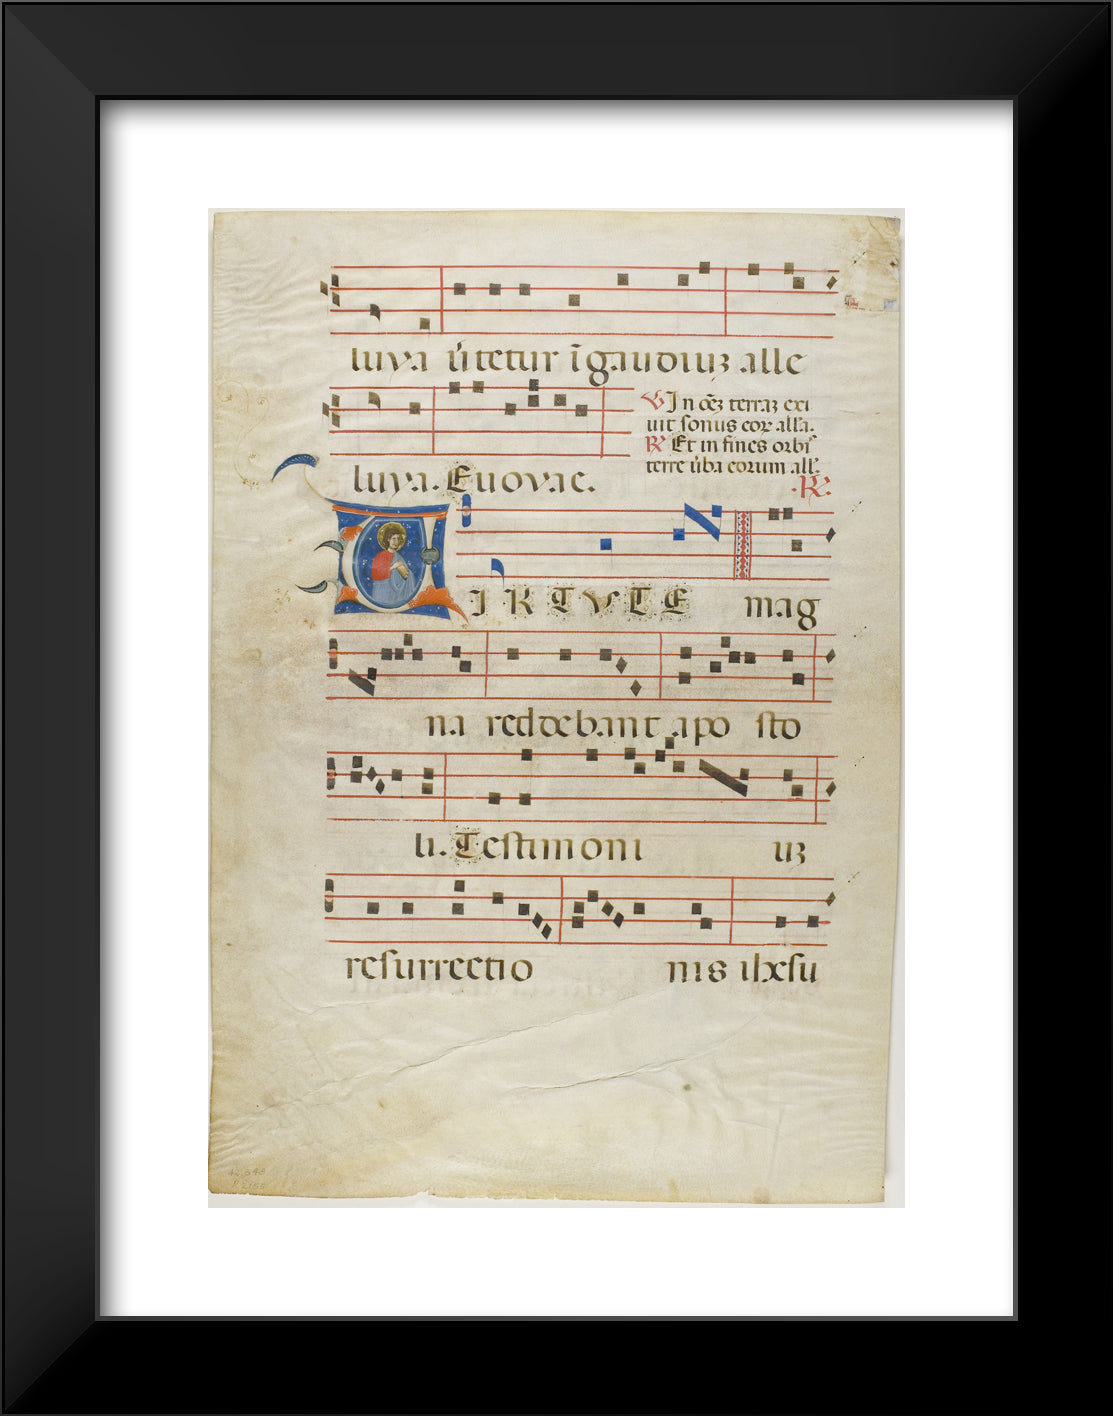 luya ūtetur īgaudiuʒ alle
luya. Euovae.
V In oēʒ terraʒ exi
uit sonus eoꝝ alľa.
R Et in fines orbis
terre ūba eorum all'.
.R.
VIRTUTE mag
na reddebant apo sto
li. Testimoni uʒ
resurrectio nis ihesu